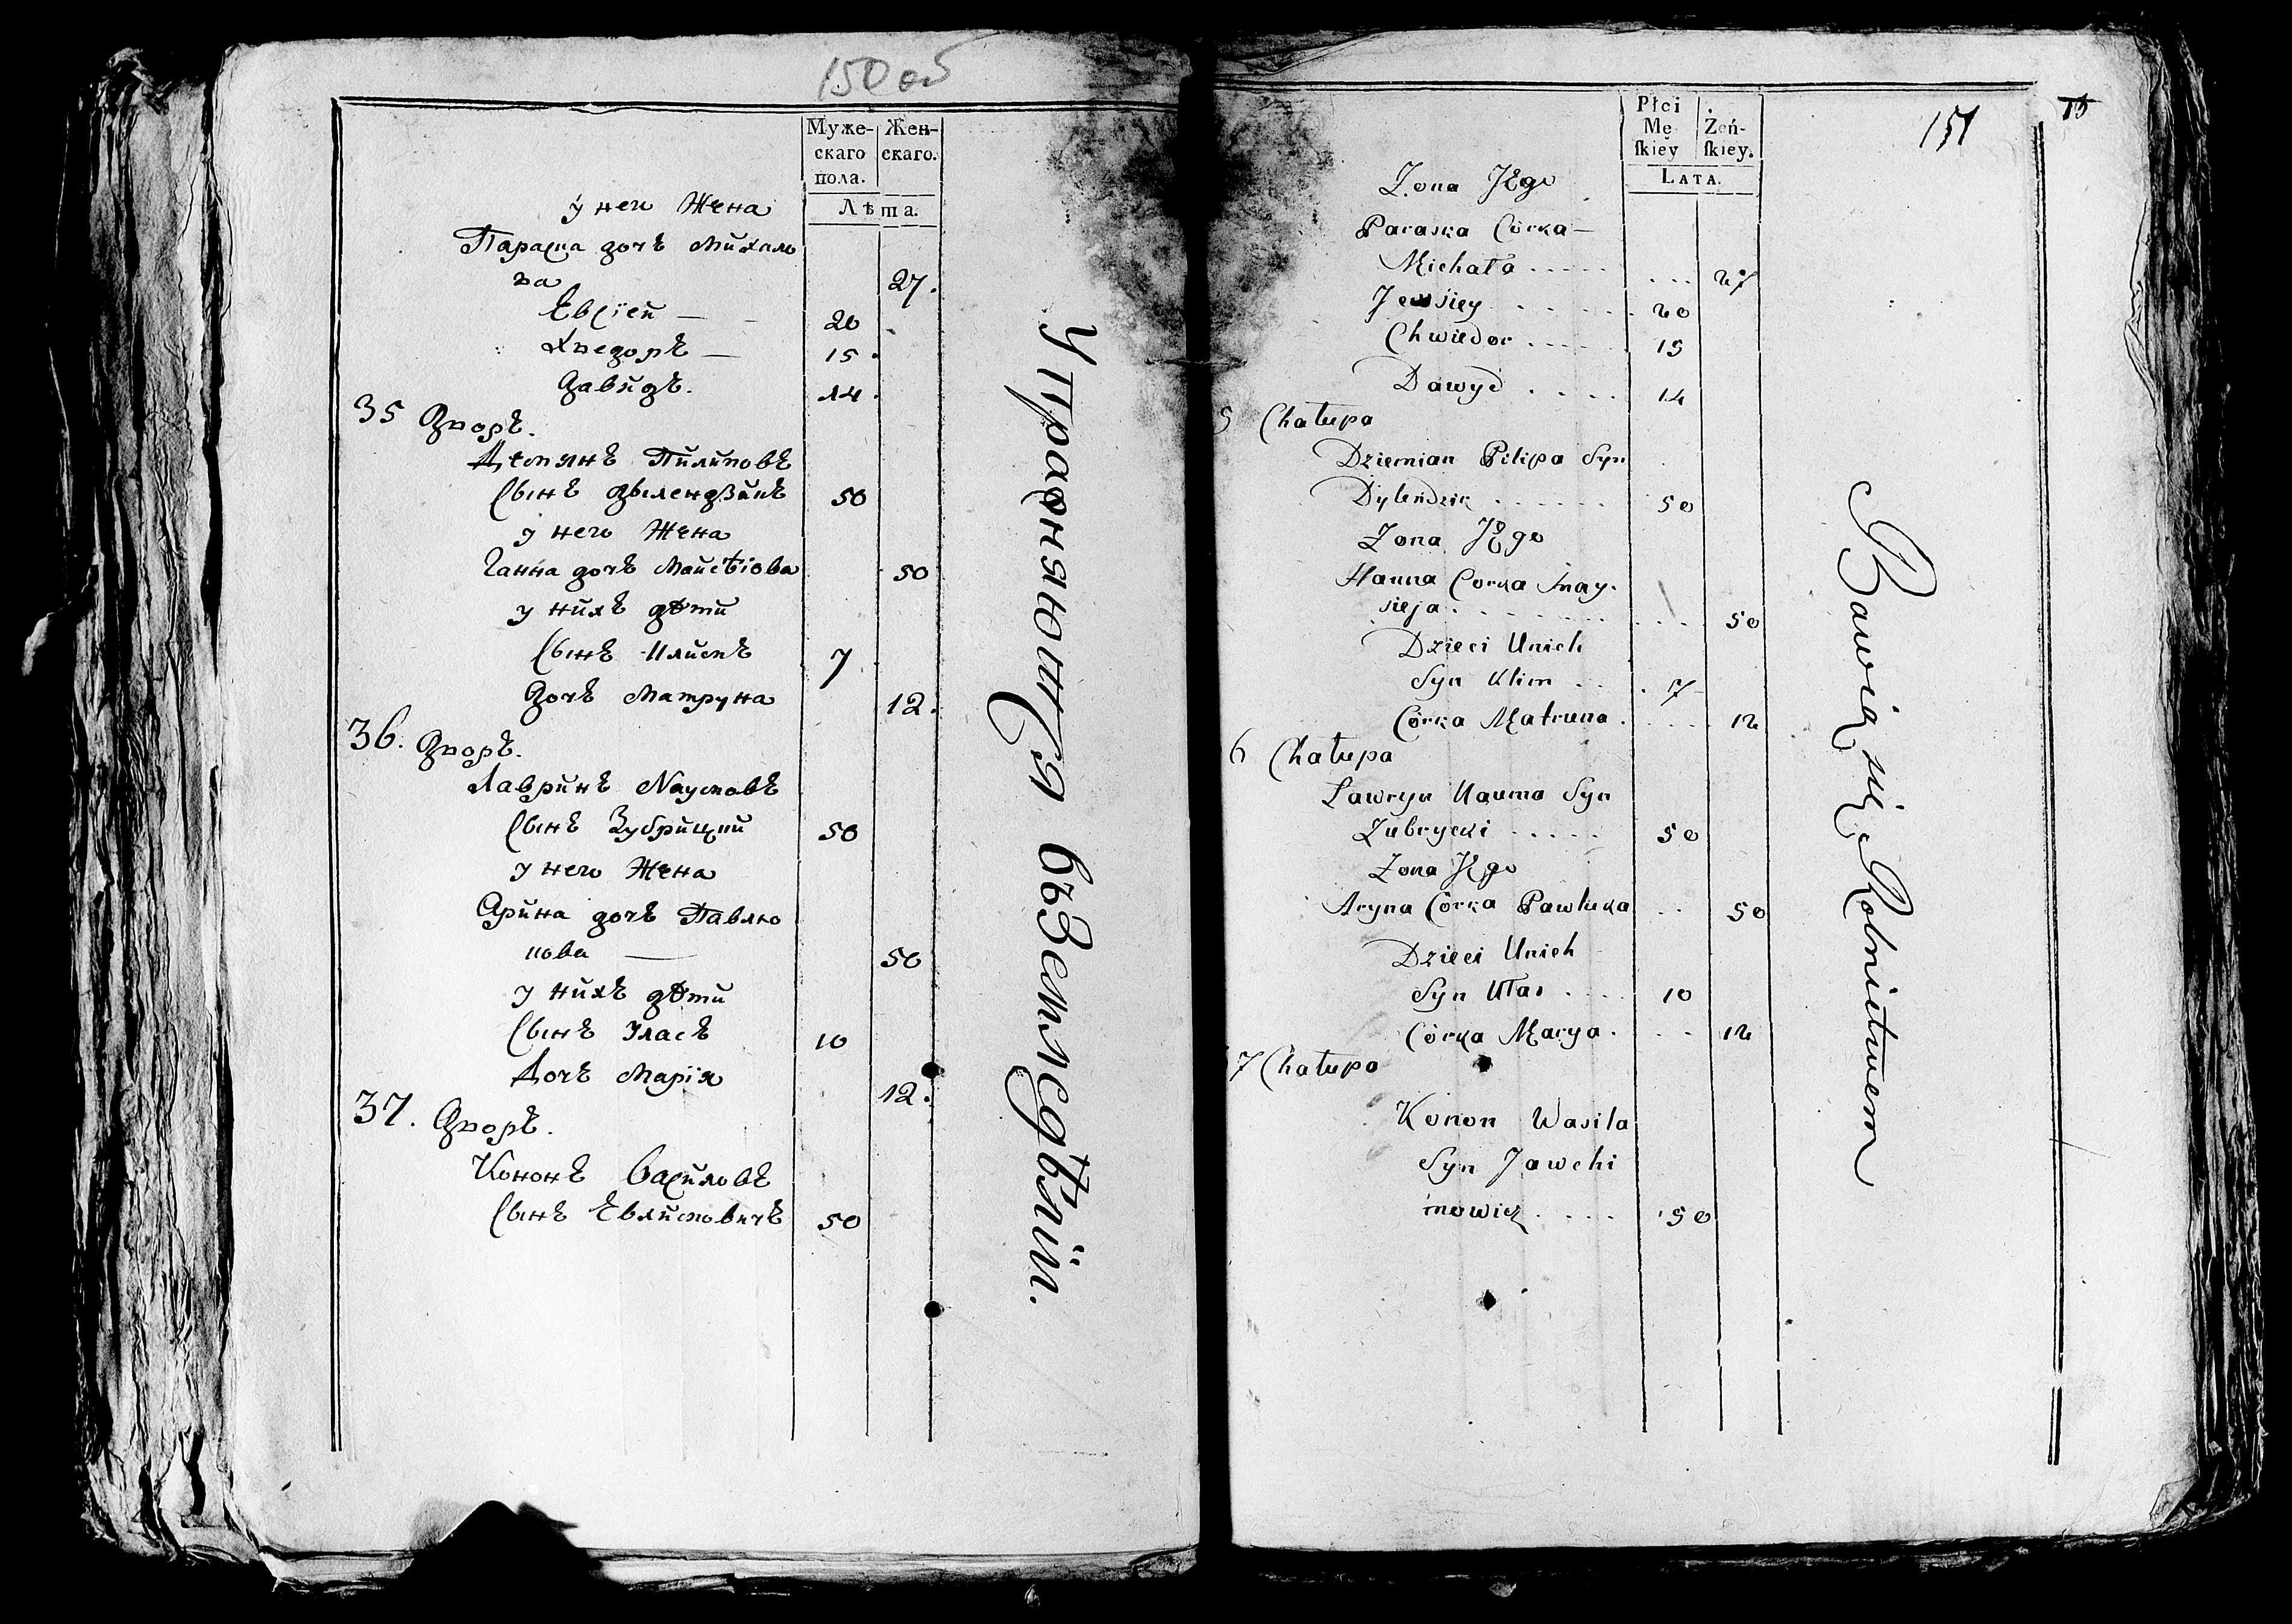 150 об
Муже-
скаго
пола.
Жен-
скаго.
Лѣта.
у него Жена
Параска дочъ Михало
ва 27.
Евсiей — 20
Хведоръ — 15.
Давидъ. 14.
35 Дворъ.
Демянъ Пилиповъ
Сынъ Дылендзикъ 50
у него Жена
Ганна дочъ Мойсѣiова 50
у нихъ дѣти
Сынъ Климъ 7
Дочъ Матруна 12.
36. Дворъ.
Лавринъ Наумовъ
Сынъ Зубрицкий 50
у него Жена
Арина дочъ Павлю
кова — 50
у нихъ дѣти
Сынъ Уласъ 10
Дочъ Марiя 12.
37. Дворъ.
Кононъ Василовъ
Сынъ Евхимовичъ 50
Упражняютця въ Земледѣлiи.
151
Płci
Mę
ſkiey
Żeń-
ſkiey.
LATA.
Żona JEgo
Paraska Córka —
Michała . . . . . 27
Jewsiey . . . . . 20
Chwiedor . . . . 15
Dawyd . . . . 14
5 Chałupa
Dziemian Pilipa Syn
Dylendzik . . . . . 50
Żona JEgo
Hanna Corka May-
sieja . . . . . 50
Dzieci Unich
Syn Klim . . . 7
Córka Matruna . . . . 12
6 Chałupa
Ławryn Nauma Syn
Zubrycki . . . . . 50
Żona JEgo
Aryna Córka Pawluka . . 50
Dzieci Unich
Syn Ułas . . . . 10
Córka Marya . . . 12
7 Chałupa
Konon Wasila
Syn Jawchi
mowicz . . . . 50
Bawią się Rolnictwem